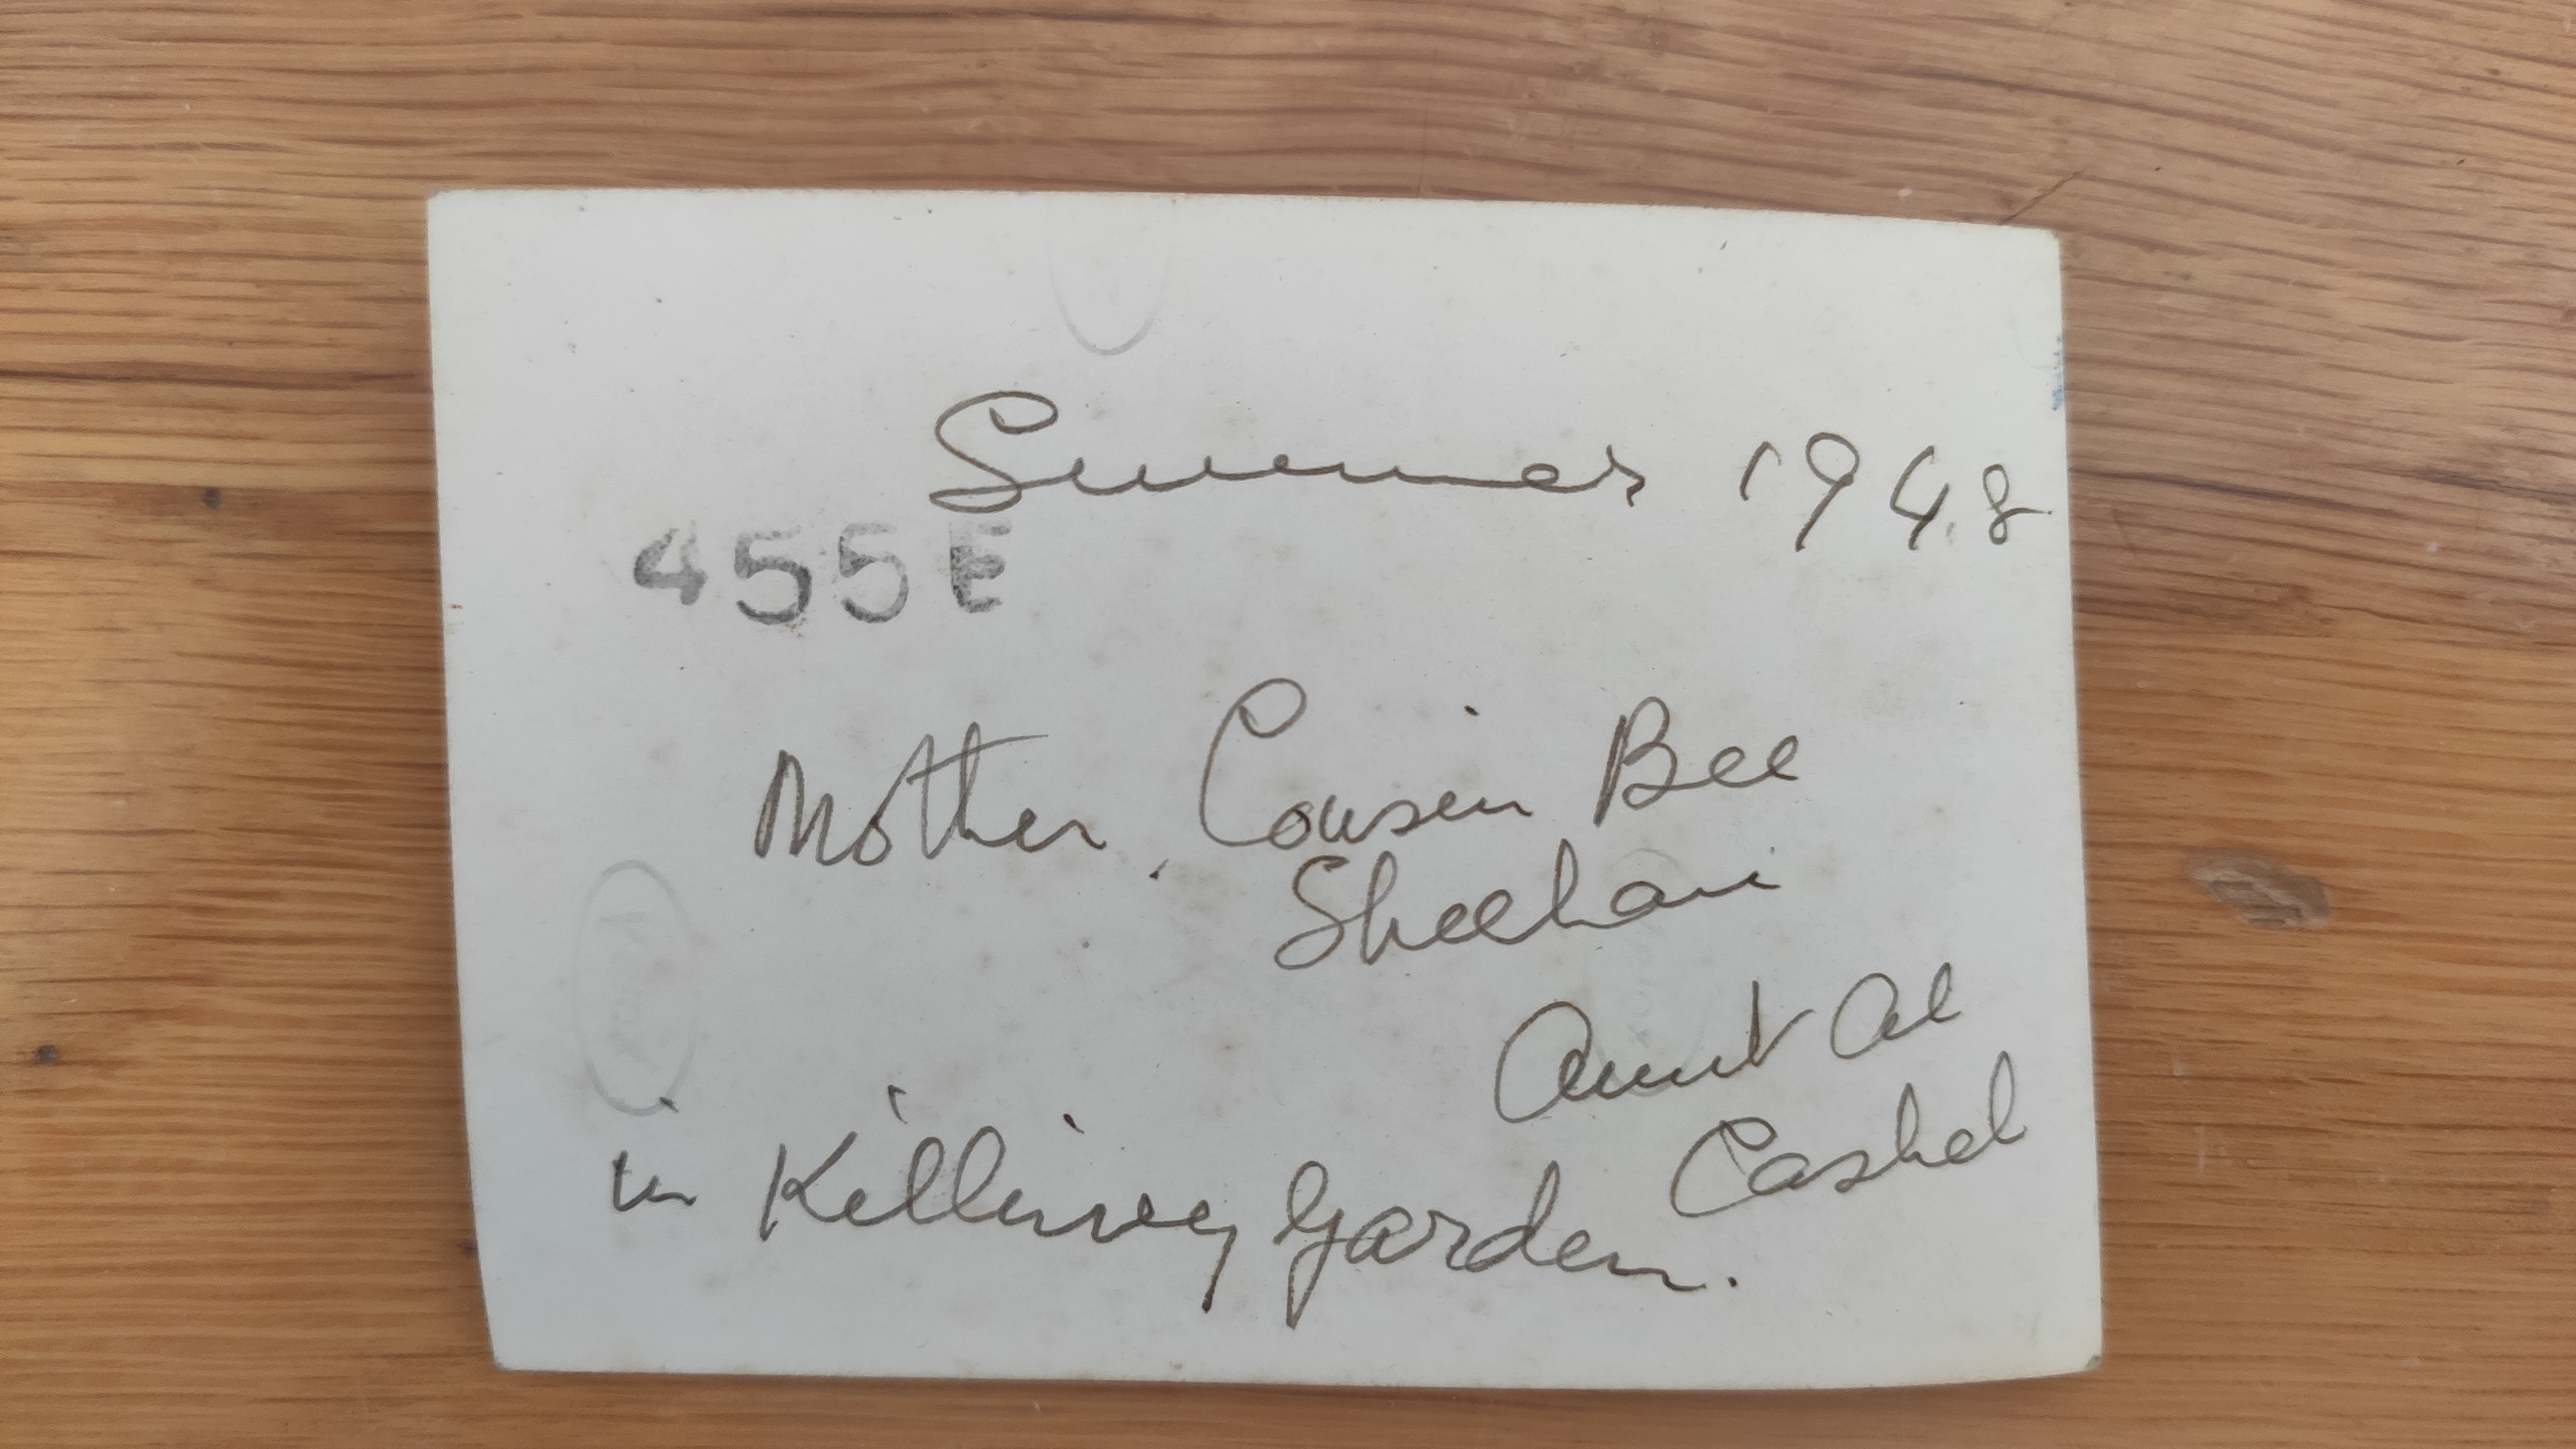 Summer 1948
455E
Mother, Cousin Bee
Sheehan
Aunt Al
Cashel
in Killiney Garden.